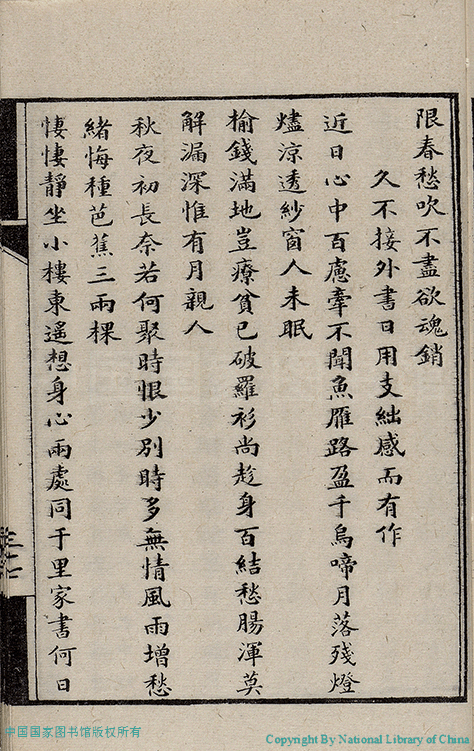 限春愁吹不盡欲魂銷
久不接外書日用支絀感而有作
近日心中百慮牽不聞魚雁路盈千烏啼月落殘燈
燼涼透紗窗人未眠
榆錢滿地豈療貧已破羅衫尚趁身百結愁腸渾莫
解漏深惟有月親人
秋夜初長奈若何聚時恨少別時多無情風雨增愁
緒悔種芭蕉三兩棵
悽悽靜坐小樓東遥想身心兩處同千里家書何日
中国国家图书馆版权所有
Copyright By National Library of China